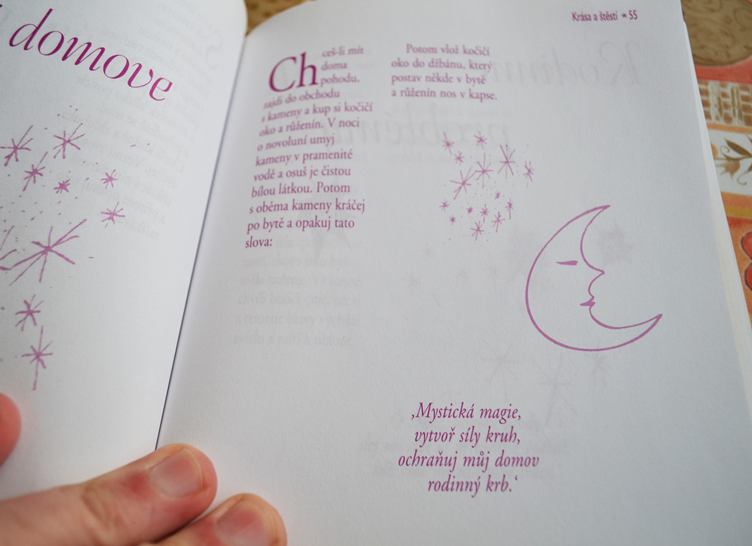 domove
Krása a štěstí * 55
Chceš-li mít
doma
pohodu,
zajdi do obchodu
s kameny a kup si kočičí
oko a růženín. V noci
o novoluní umyj
kameny v pramenité
vodě a osuš je čistou
bílou látkou. Potom
s oběma kameny kráčej
po bytě a opakuj tato
slova:
Potom vlož kočičí
oko do džbánu, který
postav někde v bytě
a růženín nos v kapse.
‚Mystická magie,
vytvoř síly kruh,
ochraňuj můj domov
rodinný krb.‘